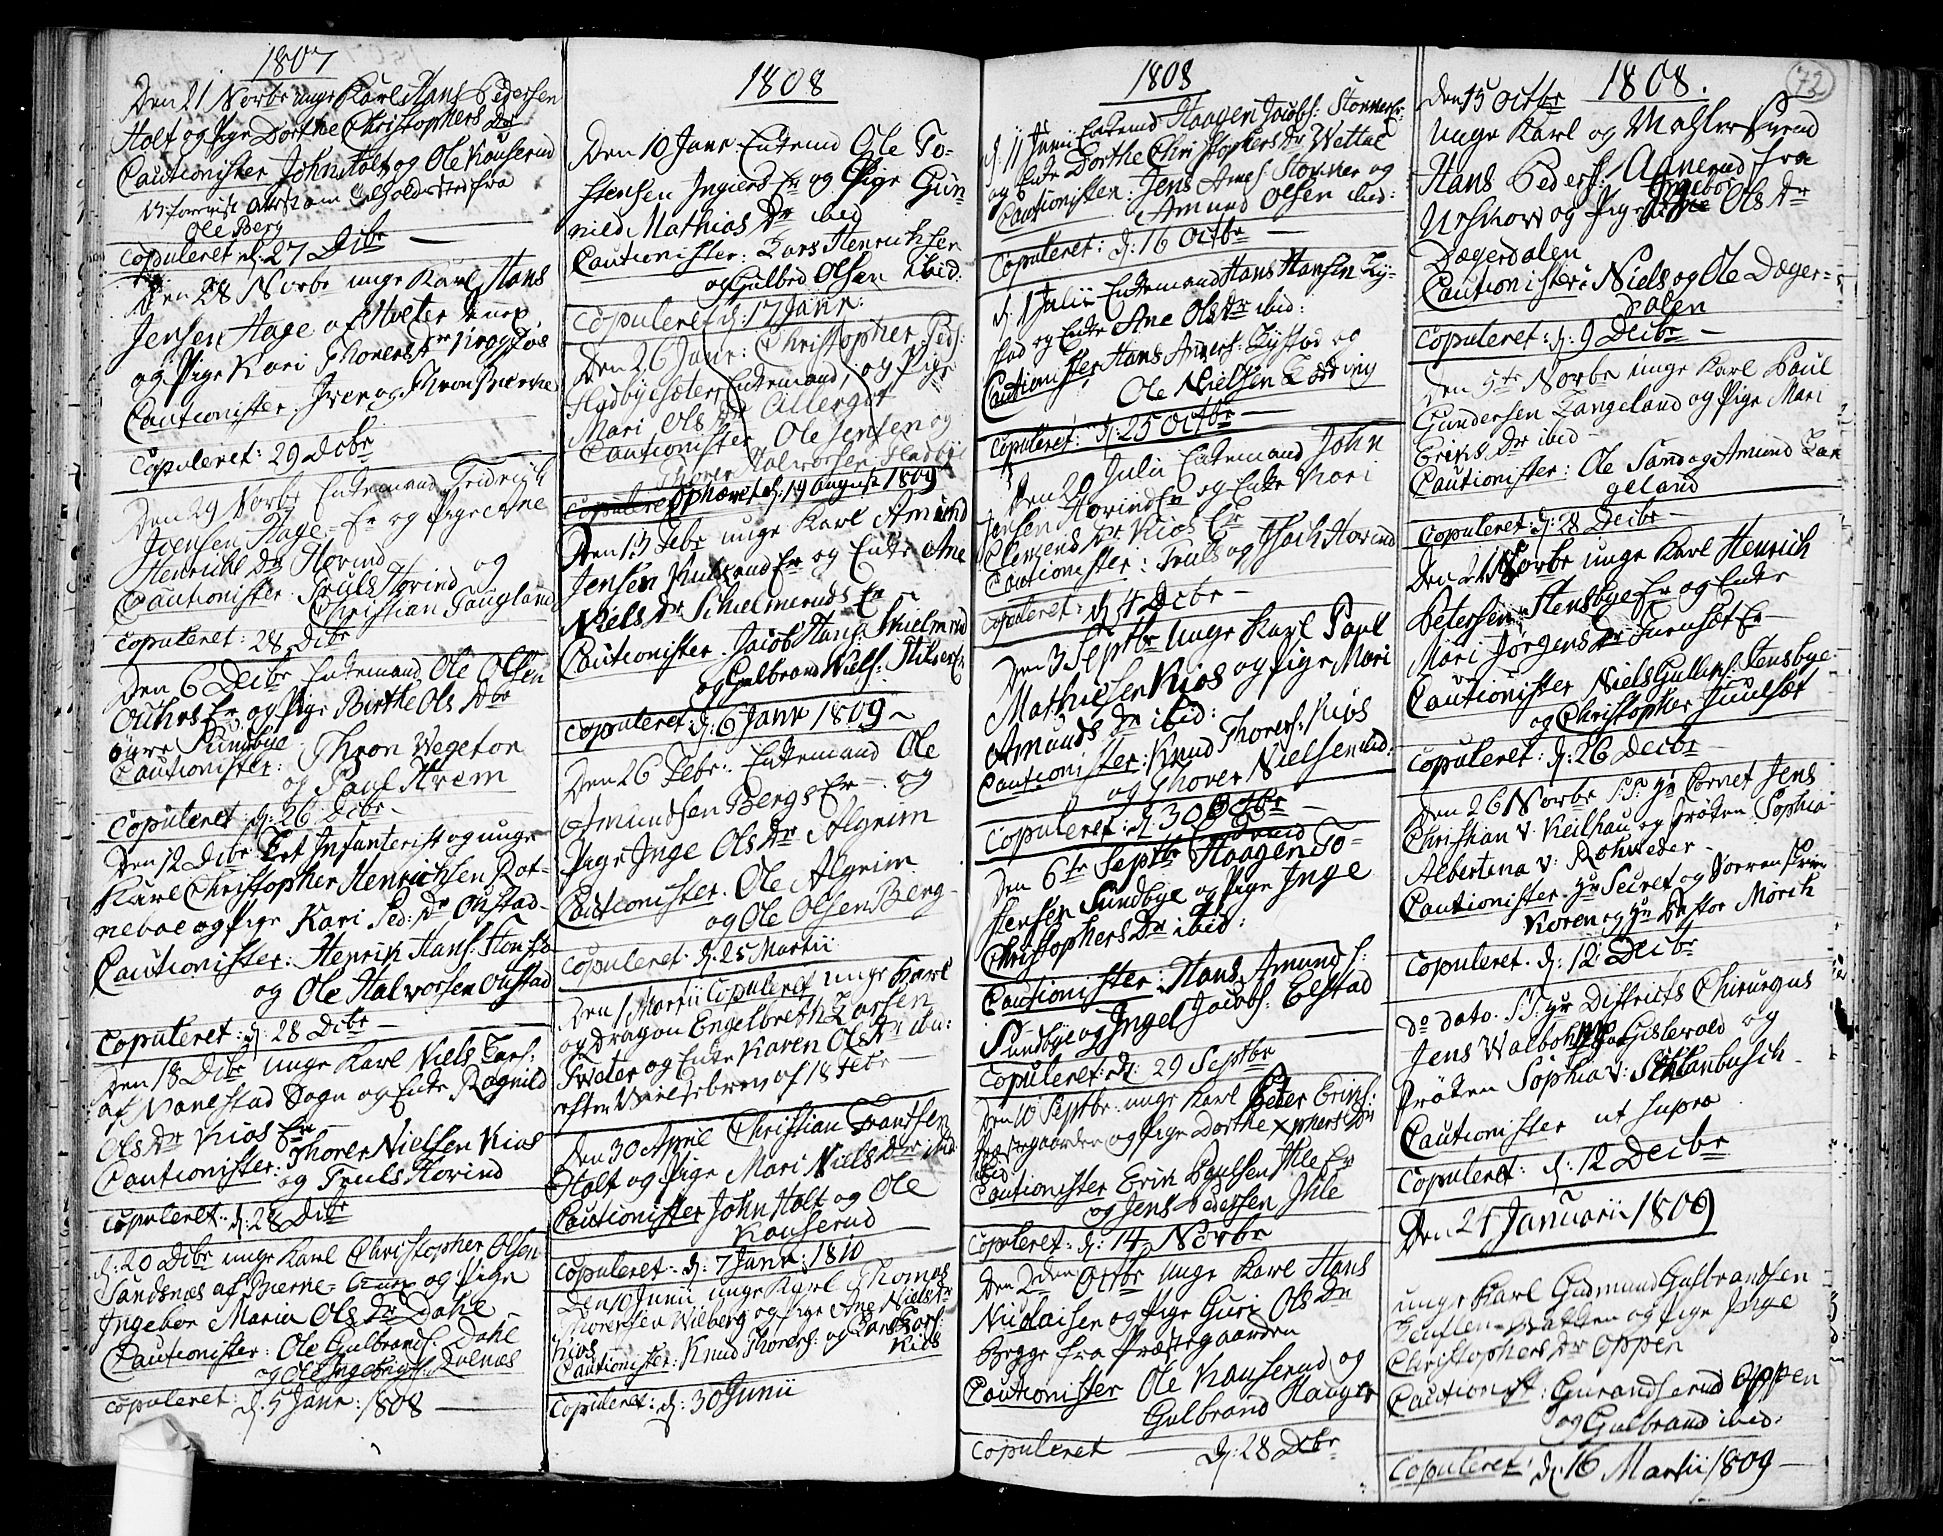 1807
Den 21 Novbr unge Karl Hans Pedersen
Holt og Pige Dorthe Christophers Dr
Cautionister John Holt og Ole Kauserud
Ole Berg
Copuleret d: 27 Decbr
Den 28 Novbr unge Karl Hans
Jensen Hage af Tveter
og Pige Kari Thorers Dr
Cautionister: Iver og Thron Bierche
Copuleret: 29 Decbr
Den 29 Novbr Enkemand Fridrich
Jensen Hage Er og Pige Ane
Henrichs Dr Hovind
Cautionister Truls Hovind og
Christian Taugland
Copuleret: 28 Decbr
Den 6 Decbr Enkemand Ole Olsen
Ouhrs Er og Pige Birthe Ols Dtr
øvre Sundbye
Cautionister: Thron Wegeton
og Paul Hrem
Copuleret d: 26 Decbr
Den 12 Decbr Infanterist og unge
Karl Christopher Henrichsen Rot-
neboe og Pige Kari Ped: Dr Onstad
Cautionister: Henrik Hans:
og Ole Halvorsen Onstad
Copuleret: d: 28 Decbr
Den 18 Decbr unge Karl Niels Lars:
af Nanestad Sogn og Enke Ragnild
Ols Dr Kios Er
Cautionister: Thorer Nielsen Kios
og Truls Hovind
Copuleret: d: 28 Decbr
d: 20 Decbr unge Karl Christopher Olsen
Sandsnæs af Bierne- og Pige
Ingebor Maria Ols Dr Dahl
Cautionister: Ole Gulbrands: Dahl
og Ole Ingebrigts: Dalnæs
Copuleret: d: 5 Janr: 1808
1808
Den 10 Janr Enkemd Ole To-
stensen Ingiers Er og Pige Gun-
nild Mathias Dr ibid
Cautionister: Lars Henrichsen
og Gulbrd Olsen ibid:
Copuleret d: 17 Janr:
Den 26 Janr: Christopher Peds:
Hadbyesæter Enkemand, og Pige
Mari Ols Dr Cillergot
Cautionister Ole Jensen og
Thorer Halvorsen Hadbye
Ophævet d: 19 August 1809
Den 13 Febr unge Karl Amund
Jensen Er og Enke Ane
Niels Dr Schielmeruds Er
Cautionister: Jacob Hans: Skielmerud
og Gulbrand Niels:
Copuleret: d: 6 Janr 1809
Den 26 Febr: Enkemand Ole
Amundsen Bergs Er og
Pige Inge Ols Dr Algrim
Cautionister: Ole Algrim
og Ole Olsen Berg
Copuleret: d: 25 Martii
Den 1 Martii Copuleret unge Karl
og Dragon Engelbreth Larsen
Tveter og Enke Karen Ols Dr ibid:
efter Vielsebrev af 18 Febr
Den 30 April Christian Frantsen
Holt og Pige Mari Niels Dr ibid
Cautionister John Holt og Ole
Kauserud
Copuleret: d: 7 Janr: 1810
Den 10 Junii unge Karl Thomas
Thorersen Wilberg og Pige Ane Niels Dr
Kios
Cautionister: Knud Thorers: og Lars Thors:
Kios
Copuleret: d: 30 Junii
1808
d: 11 Junii Enkemd Haagen Jacobs: Stonner Er:
og Enke Dorthe Christophers Dr Wettal
Cautionister: Jens Amds: Stonner og
Amund Olsen ibid:
Copuleret: d: 16 Octbr
d: 1 Julii Enkemand Hans Hansen Ly-
stad og Enke Ane Ols Dr ibid:
Cautionister Hans Anders: Lystad og
Ole Nielsen Lødding
Copuleret: d: 25 Octbr
Den 20 Julii Enkemand John
Jensen Hovind Er og Enke Kari
Clemends Dr Kios Er
Cautionister: Truls og Isach Hovind
Copuleret: d 4 Decbr
Den 3 Septbr unge Karl Paul
Mathisen Kios og Pige Mari
Amunds Dr ibid:
Cautionister: Knud Thorers: Kiøs
og Thorer Nielsen ibid:
Copuleret: d 30 Octbr
Den 6te Septbr Haagen To-
stensen Sundbye og Pige Inge
Christophers Dr ibid:
Cautionister: Hans Amunds:
Sundbye og Ingel Jacobs: Elstad
Copuleret: d: 29 Septbr
Den 10 Septbr: unge Karl Peder Eriks:
Præstegaarden og Pige Dorthe Xphers Dr
ibid
Cautionister Erik Poulsen Ihle Er
og Jens Pedersen Ihle
Copuleret: d: 14 Novbr
Den 2den Octbr unge Karl Hans
Nicolaisen og Pige Guri Ols Dr
Begge fra Præstegaarden
Cautionister Ole Kauserud og
Gulbrand Hauger
Copuleret d: 28 Decbr
1808. 72
Den 15 Octbr
Unge Karl og Mahlersvend
Hans Peders: Annerud fra
Urskow og Pige Ingebor Ols Dr
Dægerdalen
Cautionister: Niels og Ole Dæger-
dalen
Copuleret: d: 9 Decbr
Den 5te Novbr unge Karl Poul
Gundersen Langeland og Pige Mari
Eriks Dr ibid
Cautionister: Ole Sand og Amund Lan
geland
Copuleret: d: 28 Decbr
Den 21 Novbr unge Karl Henrich
Petersen Stensbye Er og Enke
Mari Jørgens Dr Furusæt Er
Cautionister Niels Gulbr: Stensbye
og Christopher Juulsæt
Copuleret: d: 26 Decbr
Den 26 Novbr S:T: Hr Cornet Jens
Christian v: Keilhau og Frøken Sophia
Albertina v: Rohweder
Cautionister: Hr Secret og Sorenskriv
Koren og Hr Pastor Mørch
Copuleret: d: 12 Decbr
Do dato S:T: Hr Districts Chirurgus
Jens Walbohm Gislevold og
Frøken Sophia v: Schlanbusch
Cautionister ut supra
Copuleret: d: 12 Decbr
Den 21 Januarii 1809
unge Karl Gudmund Gulbrandsen
og Pige Inge
Christophers Dr Oppen
Cautionist: Oppen
og Gulbrand ibid:
Copuleret: d: 16 Martii 1809